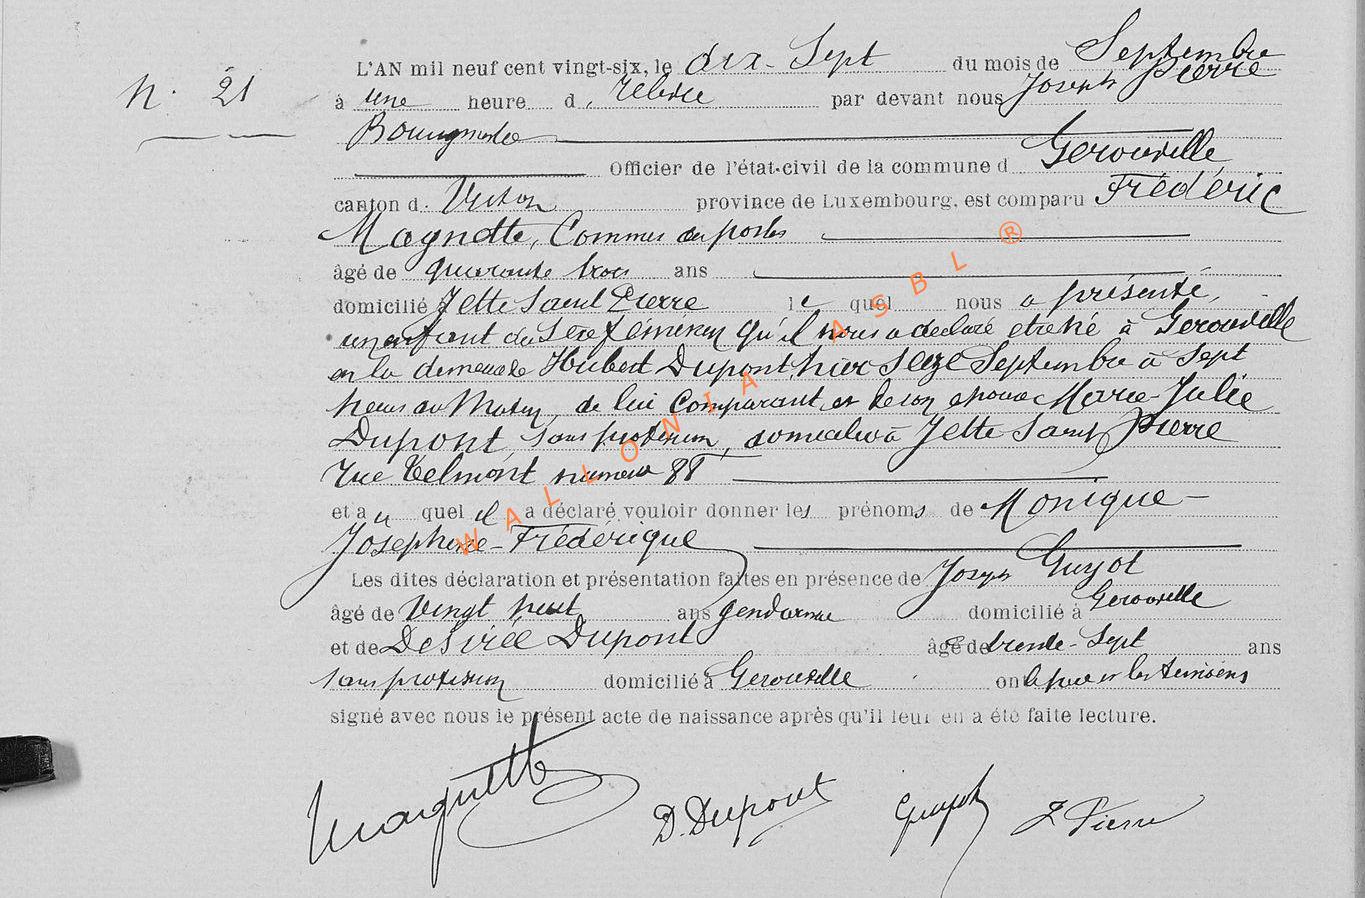 N. 21
L'AN mil neuf cent vingt-six, le dix-Sept du mois de Septembre
à une heure d. relevée par devant nous Joseph Pierre
Bourgmestre
Officier de l'état-civil de la commune d Gerouville
canton d. Virton province de Luxembourg, est comparu Frédéric
Magnette, Commis des postes
âgé de quarante trois ans
domicilié à Jette Saint Pierre le quel nous a présenté,
un enfant du sexe féminin qu'il nous a déclaré etre né à Gerouville
en la demeure de Hubert Dupont, hier Seize Septembre à Sept
heures du Matin, de lui Comparant et de son épouse Marie-Julie
Dupont, sans profession, domiciliée à Jette Saint Pierre
rue numéro 88
et au quel il a déclaré vouloir donner les prénoms de Monique-
Josephine-Frédérique
Les dites déclaration et présentation faites en présence de Joseph Guyot
âgé de Vingt neuf ans gendarme domicilié à Gerouville
et de Désirée Dupont âgé de trente-Sept ans
sans profession domicilié à Gerouville ont le père et les témoins
signé avec nous le présent acte de naissance après qu'il leur en a été faite lecture.
Magnette D. Dupont Guyot J. Pierre
WALLONIA ASBL ®